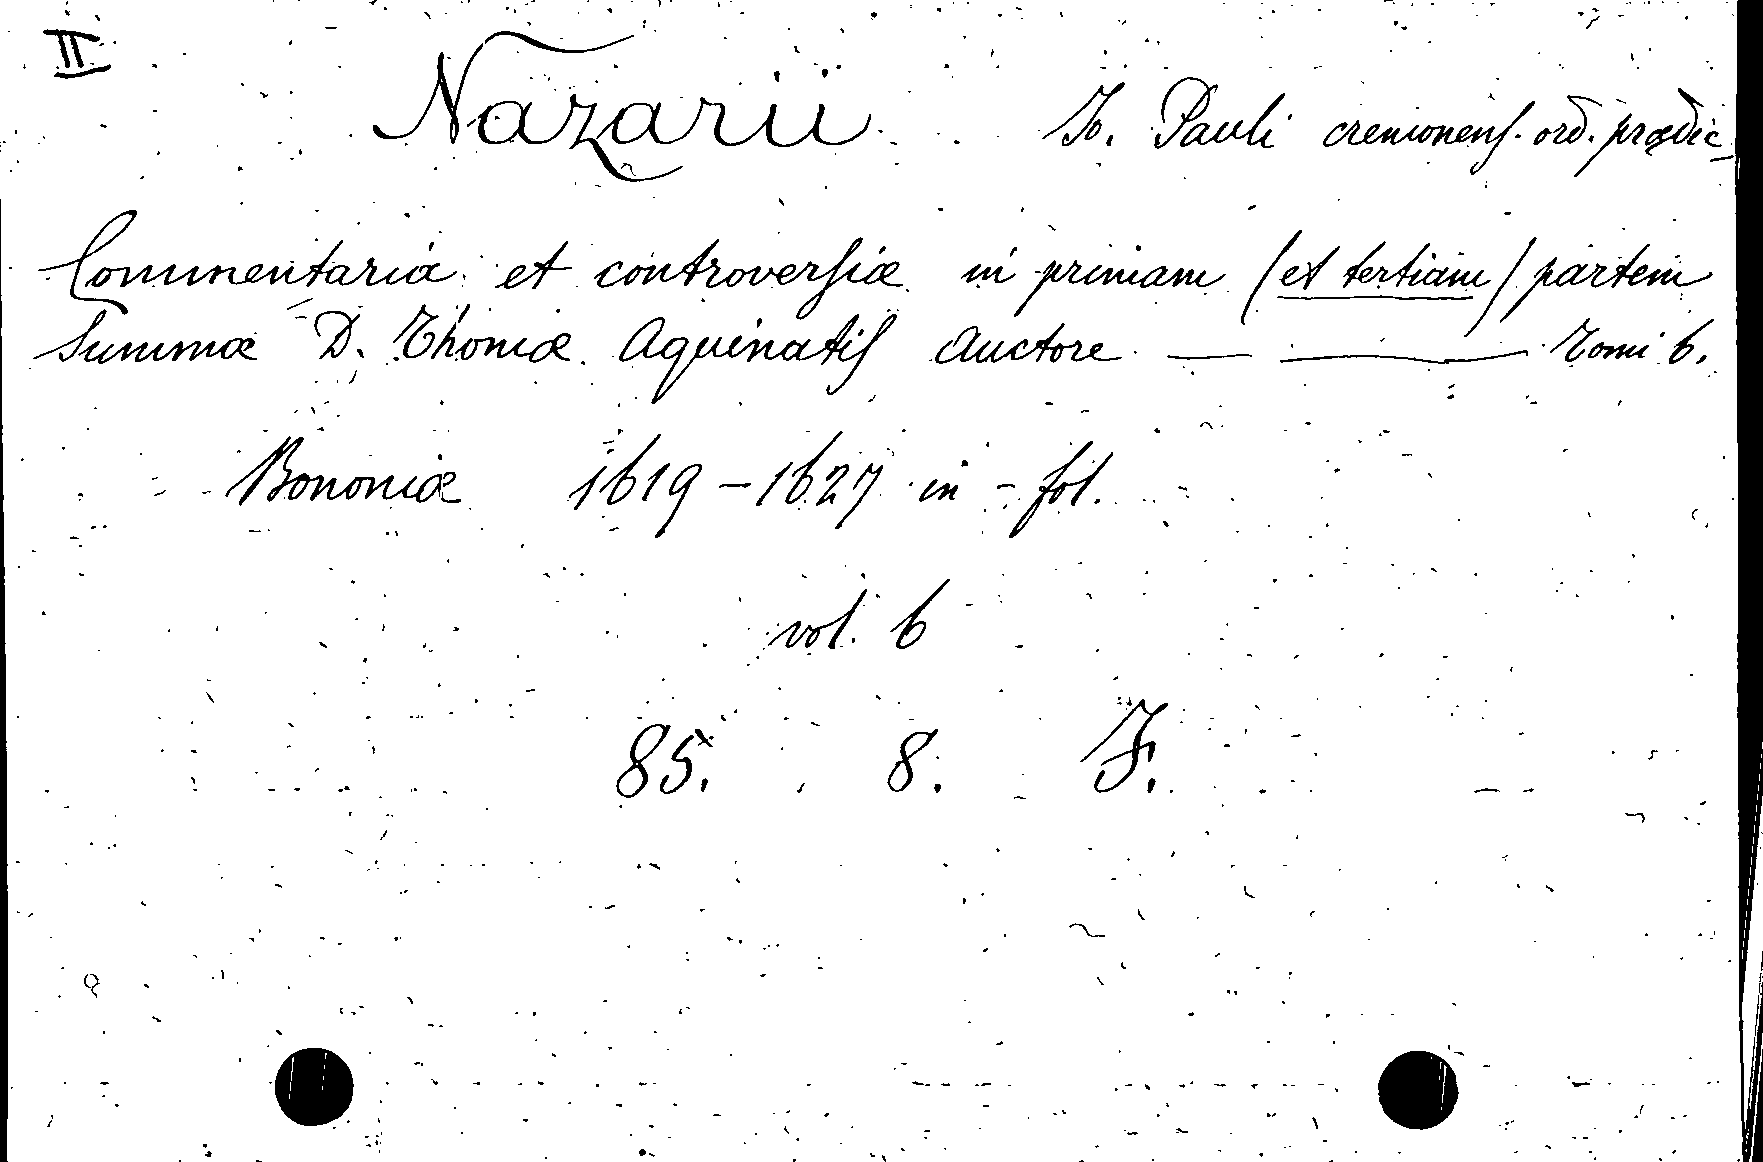 II
Nazarii Jo. Pauli cremonens. ord. prædic_
Commentaria et controversiæ in primam (et tertiam) partem
Summæ D. Thomæ Aquinatis Auctore — —— Tomi 6.
Bononiæ 1619 – 1627 in - fol.
vol. 6
85. 8. F.